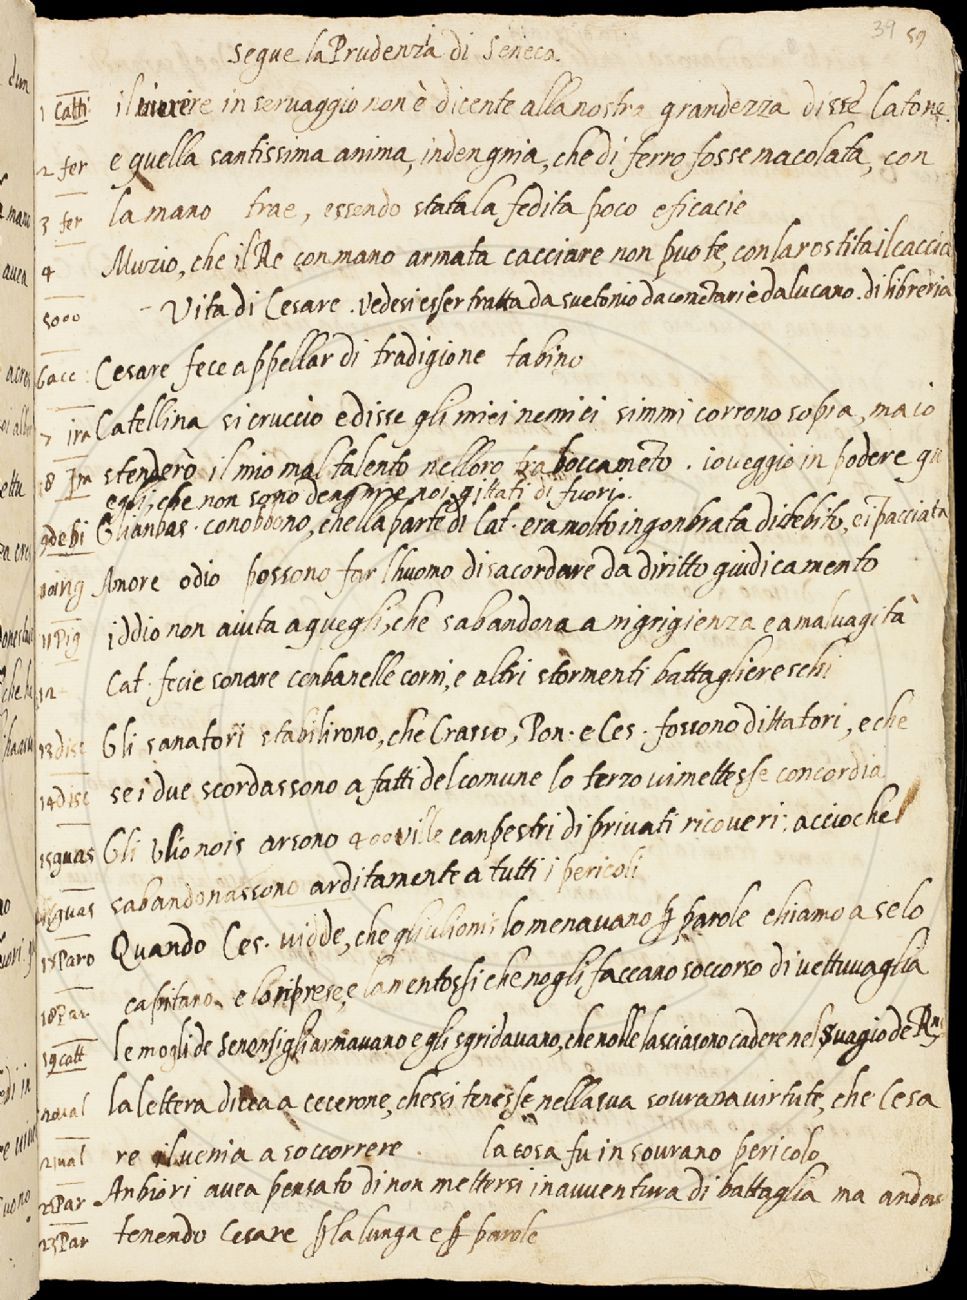 39 59
Segue la Prudenza di Seneca.
1 Catti il morire in seruaggio non è dicente alla nostra grandezza disse Catone.
2 fer e quella santissima anima, indengnia, che di ferro fosse macolata, con
3 fer la mano trae, essendo stata la fedita poco eficacie
4 Muzio, che il Re con mano armata cacciare non puote, con larostita il caccia
5000 Vita di Cesare. Vedesi esser tratta da suetonio da comentari è da lucano. di libreria
6 acc: Cesare fece appellar di tradigione Rabino
7 ira Catellina si cruccio e disse gli miei nemici simmi corrono sopra, ma io
8 Ira stenderò il mio mal talento nelloro traboccameto. io veggio in podere gn
egli, che non sono degni e noi gittati di fuori.
9 debi Gli anbas. conobbono, chella parte di Cat. era molto ingonbrata di debito, e i pacciata
10 ing Amore odio possono far lhuomo disacordare da diritto giudicamento
11 Pig iddio non aiuta a quegli, che sabandona a nigrigienza e a maluagità
12 Cat. fecie sonare cenbanelle corni, e altri stormenti battaglierechi
13 disc Gli sanatori stabilirono, che Crasso, Pon. e Ces. fossono dittatori, e che
14 disc se i due scordassono a fatti del comune lo terzo ui mettesse concordia
15 guas Gli vlionois arsono 400 ville canpestri di priuati ricoueri. accioche
guas sabandonassono arditamente a tutti i pericoli
Paro Quando Ces. uidde, che gli ulionis lo menauano p parole chiamo a se lo
18 Par capitano e lo riprese, e lamentossi che nogli faccano soccorso di uettuuaglia
19 catt le mogli de Senonsi gli armauano e gli sgridauano, che nolle lasciasono cadere nel Suagio de Rni
ual la lettera dicea a cecerone, chessi tenesse nella sua sourana uirtute, che Cesa
21 ual re il uenia a soccorrere. la cosa fu in sourano pericolo
Par Anbiori auea pensato di non mettersi in auuentura di battaglia ma andar
23 Par tenendo Cesare p la lunga e p parole